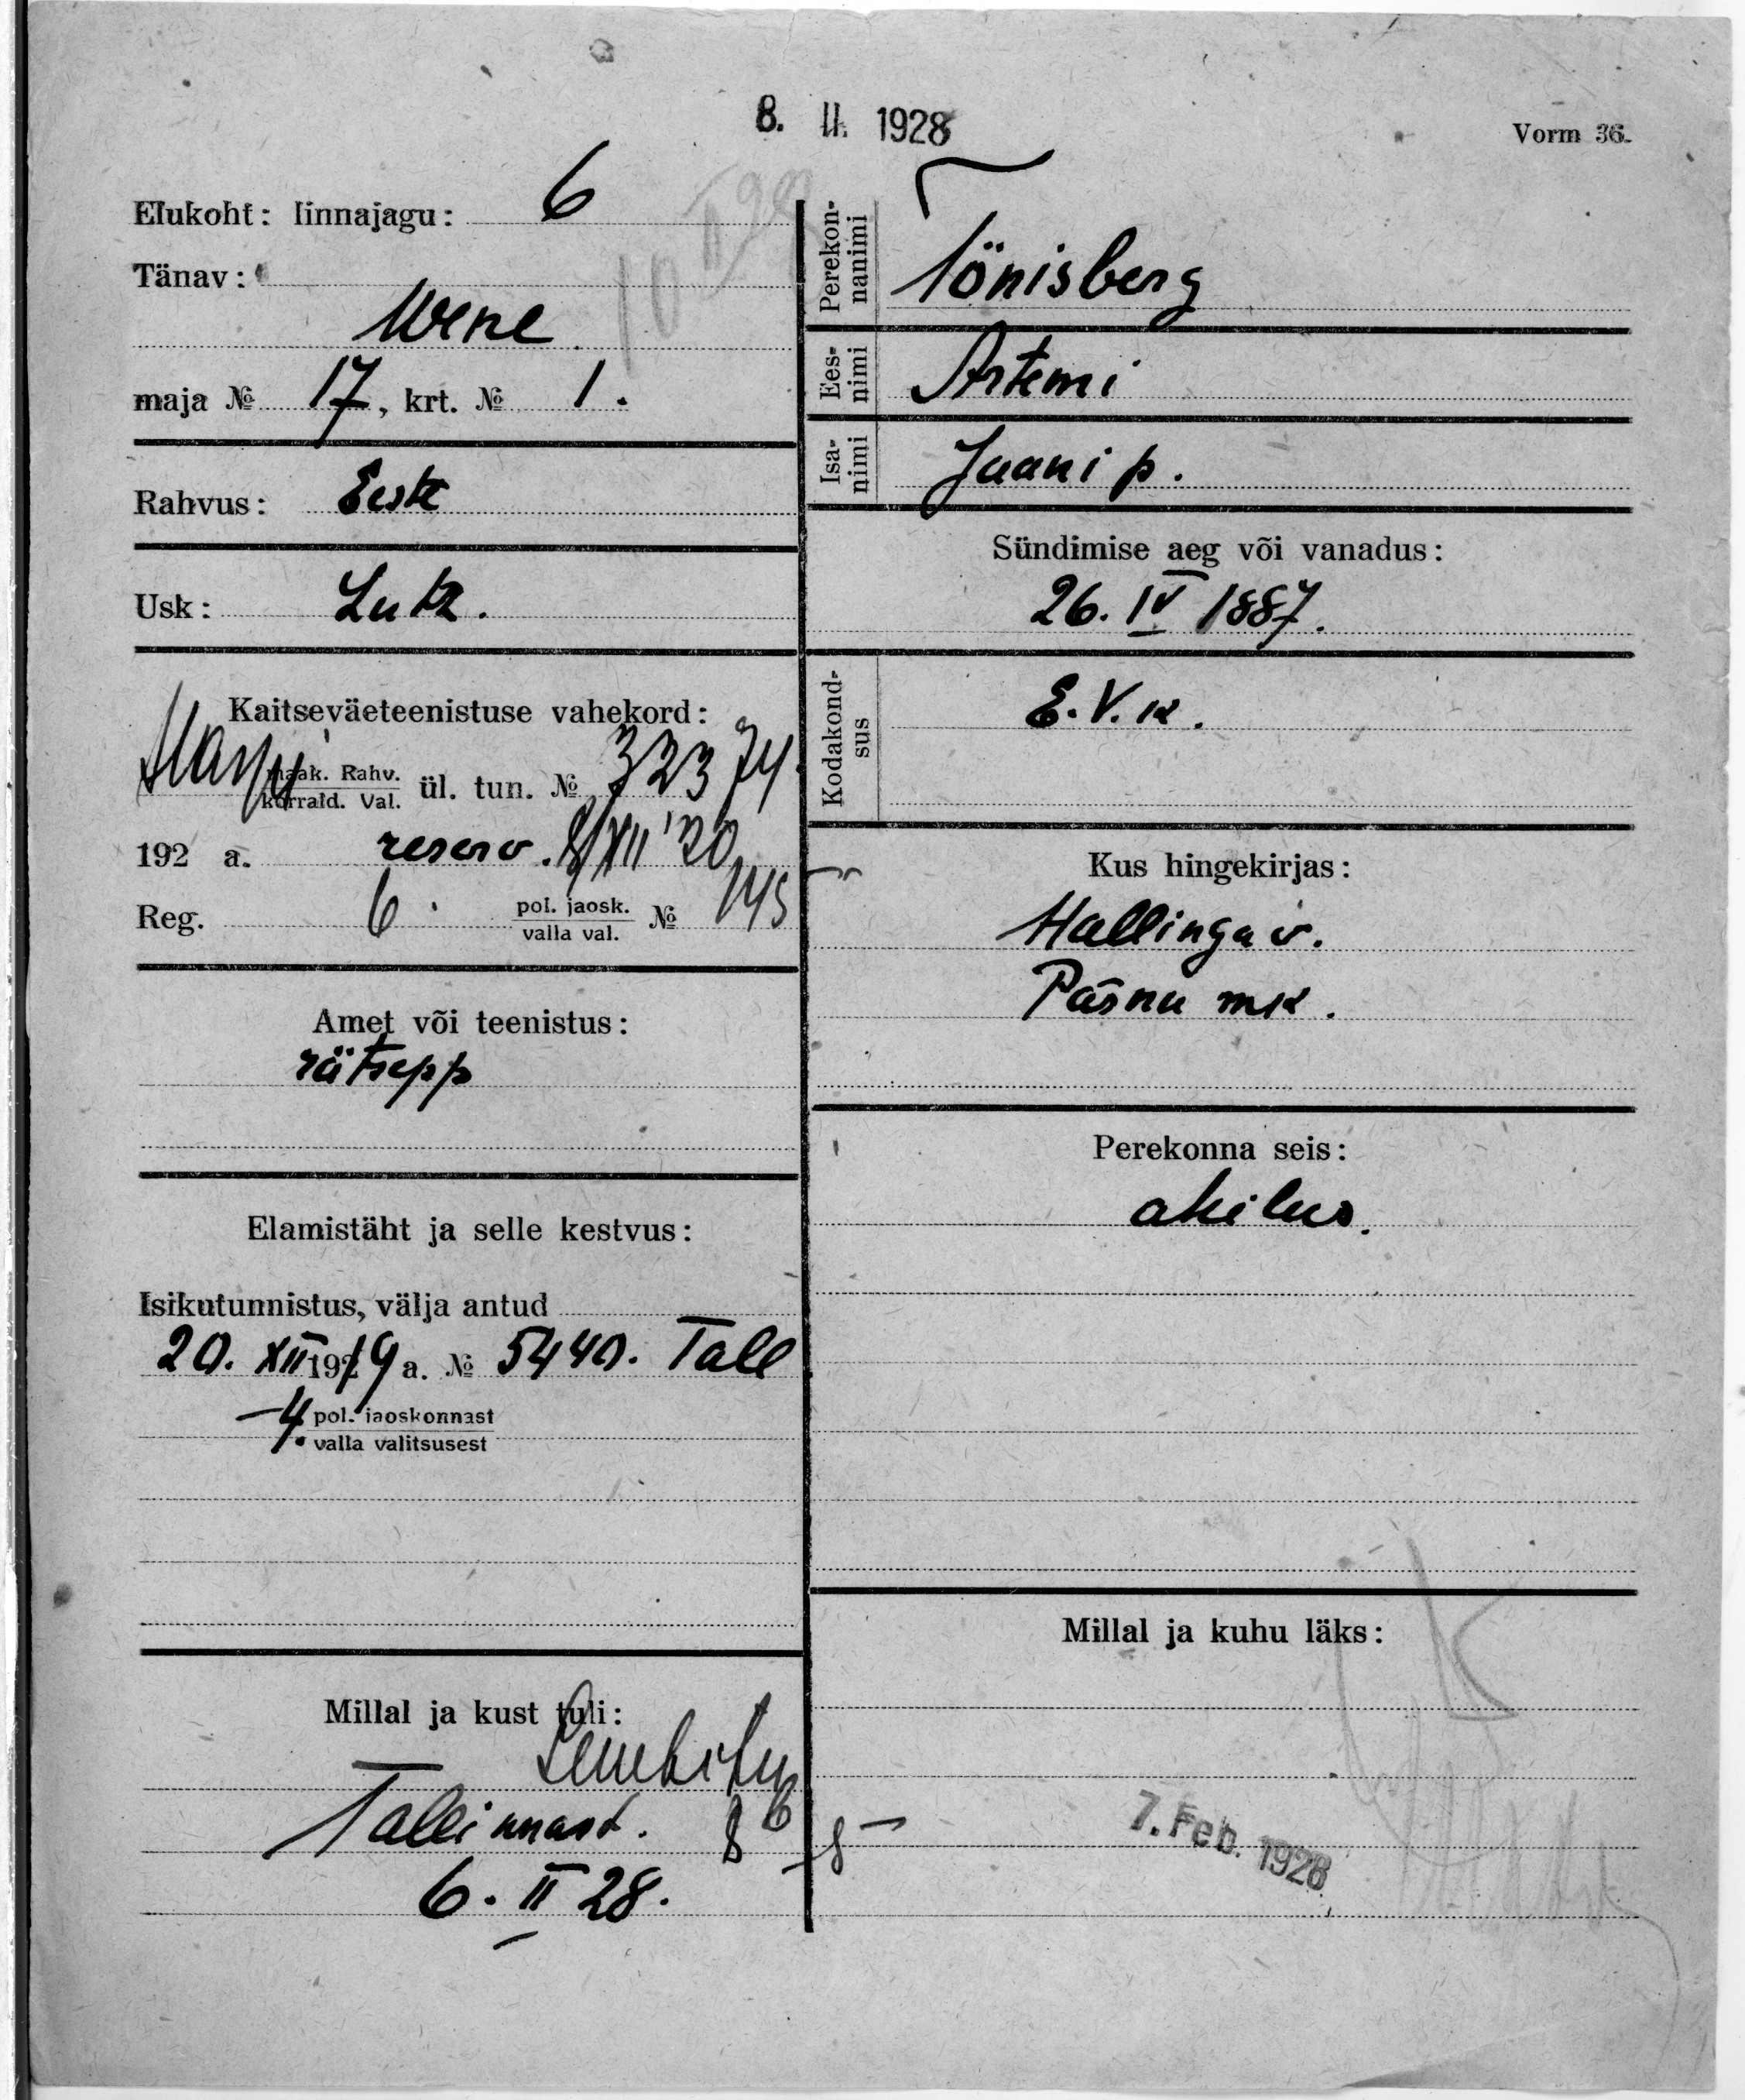 8. II. 1928
Vorm 36.
Elukoht: linnajagu: 6
Tänav:
Wene
maja № 17, krt. № 1.
Rahvus: Eesti
Usk: Luth.
Kaitseväeteenistuse vahekord:
Harju maak. Rahv. ül. tun. № 32374
korrald. Val.
192 a. reserv. 8/XII '20
Reg. 6. pol. jaosk. № 145
valla val.
Amet või teenistus:
rätsepp
Elamistäht ja selle kestvus:
Isikutunnistus, välja antud
20. XII 1919 a. № 5440. Tall
4. pol. jaoskonnast
valla valitsusest
Millal ja kust tuli:
Lembitu
Tallinnast. 8
6. II 28.
Perekonnanimi
Tõnisberg
Eesnimi
Artemi
Isanimi
Jaani p.
Sündimise aeg või vanadus:
26. IV 1887.
Kodakondsus
E. V. k.
Kus hingekirjas:
Hallinga v.
Pärnu mk.
Perekonna seis:
abielus.
Millal ja kuhu läks:
7. Feb. 1928